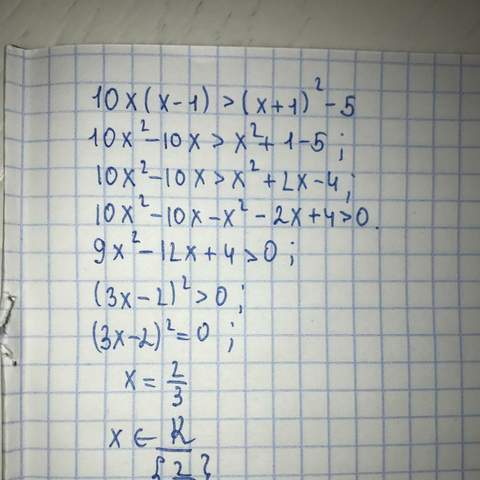 10x(x-1)>(x+1)²-5
10x²-10x>x²+1-5;
10x²-10x>x²+2x-4;
10x²-10x-x²-2x+4>0.
9x²-12x+4>0;
(3x-2)²>0;
(3x-2)²=0;
x=2/3
x∈R
{2}